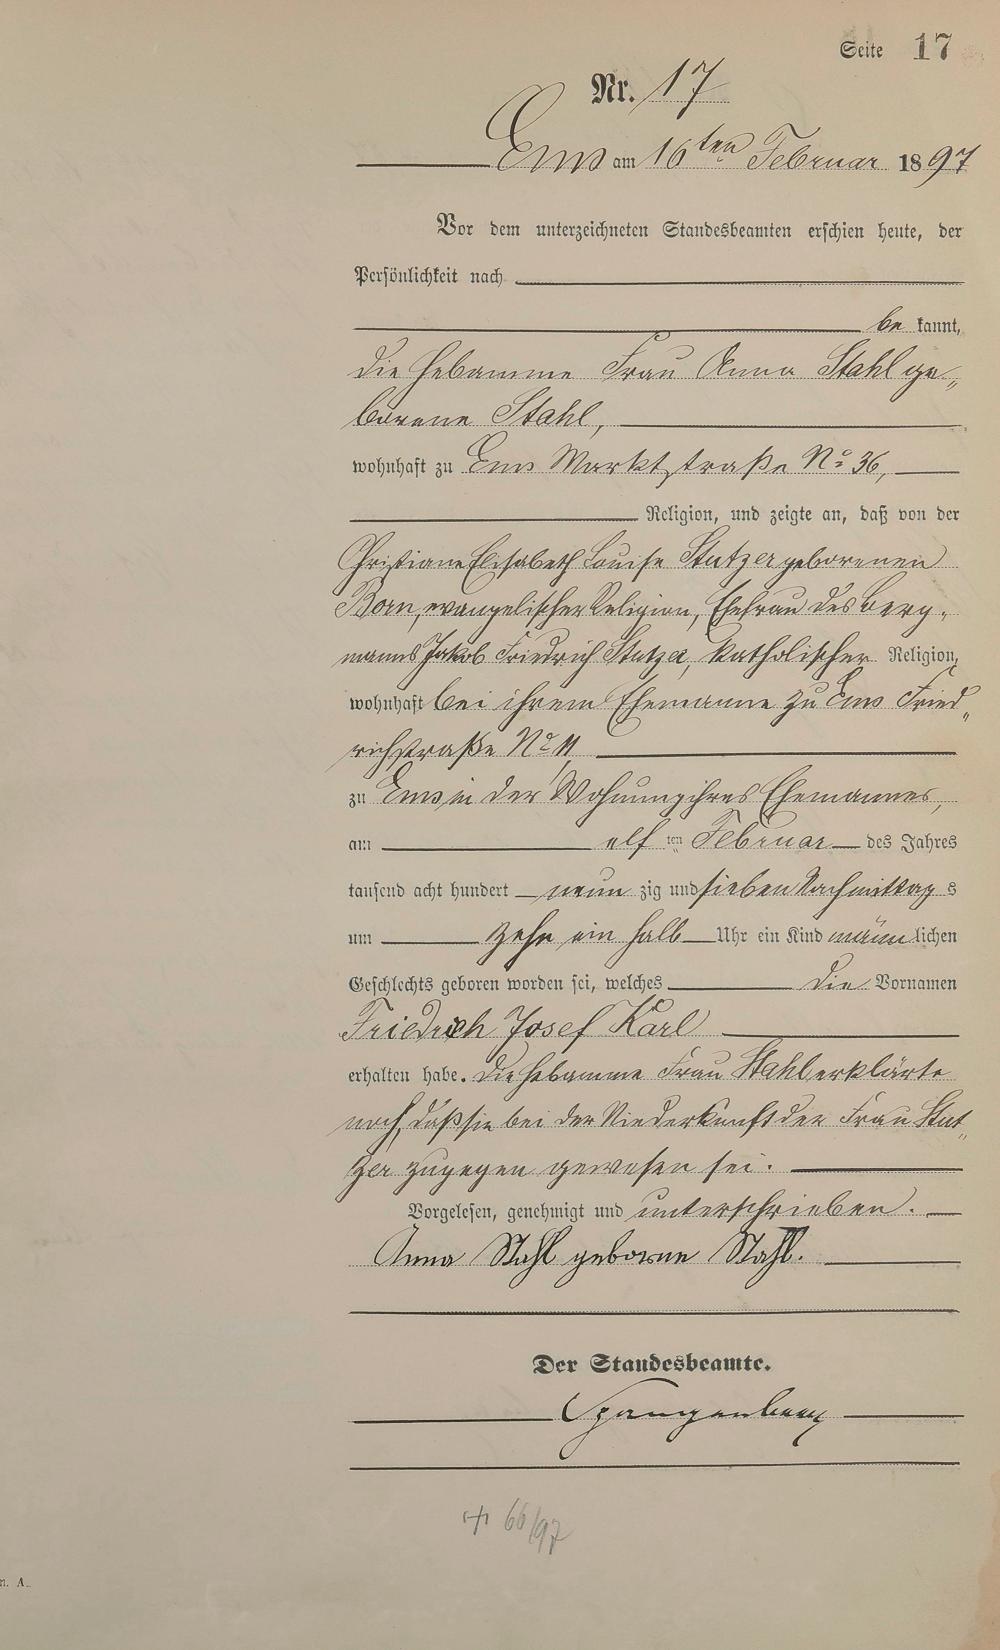 Seite 17
Nr. 17
Ems am 16ten Februar 1897
Vor dem unterzeichneten Standesbeamten erschien heute, der
Persönlichkeit nach
bekannt,
die Hebamme Frau Anna Stahl ge„
borene Stahl,
wohnhaft zu Ems Marktstraße No 36,
Religion, und zeigte an, daß von der
Christiane Elisabeth Louise Stutzer geborenen
Born, evangelischer Religion, Ehefrau des Berg„
manns Jakob Friedrich Stutzer, katholischer Religion,
wohnhaft bei ihrem Ehemanne zu Ems Fried„
richstraße No 11,
zu Ems in der Wohnung ihres Ehemannes,
am elften Februar des Jahres
tausend acht hundert neunzig und sieben Nachmittags
um zehn ein halb Uhr ein Kind männlichen
Geschlechts geboren worden sei, welches die Vornamen
Friedrich Josef Karl
erhalten habe. Die Hebamme Frau Stahl erklärte
noch, daß sie bei der Niederkunft der Frau Stut„
zer zugegen gewesen sei.
Vorgelesen, genehmigt und unterschrieben.
Anna Stahl geborne Stahl.
Der Standesbeamte.
Spangenberg
+ 66/97
n. A.